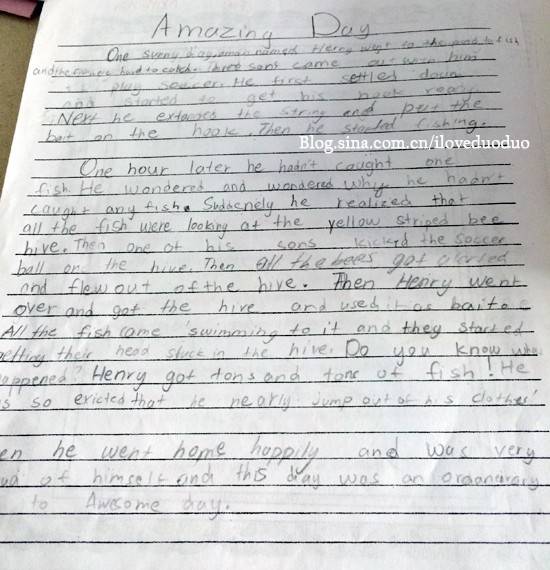 Amazing Day
One sunny day, a man named Henry went to the pond to fish
and the more hard to catch. Three sons came out with him
play soccer. He first settled down
and started to get his hook ready
Next he extanded the string and put the
bait on the hook. Then he started fishing.
Blog.sina.com.cn/iloveduoduo
One hour later he hadn't caught one
fish. He wondered and wondered why he hadn't
caught any fish. Suddenely he realized that
all the fish were looking at the yellow striped bee
hive. Then one of his sons kickyd the soccer
ball on the hive. Then all the bees got alerted
and flew out of the hive. Then Henry went
over and got the hive and used it as bait
All the fish came swimming to it and they started
etting their head stuck in the hive. Do you know wha
appened? Henry got tons and tons of fish! He
s so exicted that he nearly jump out of his clothes!
en he went home happily and was very
ud of himself and this day was an oraandrary
to Awesome day.